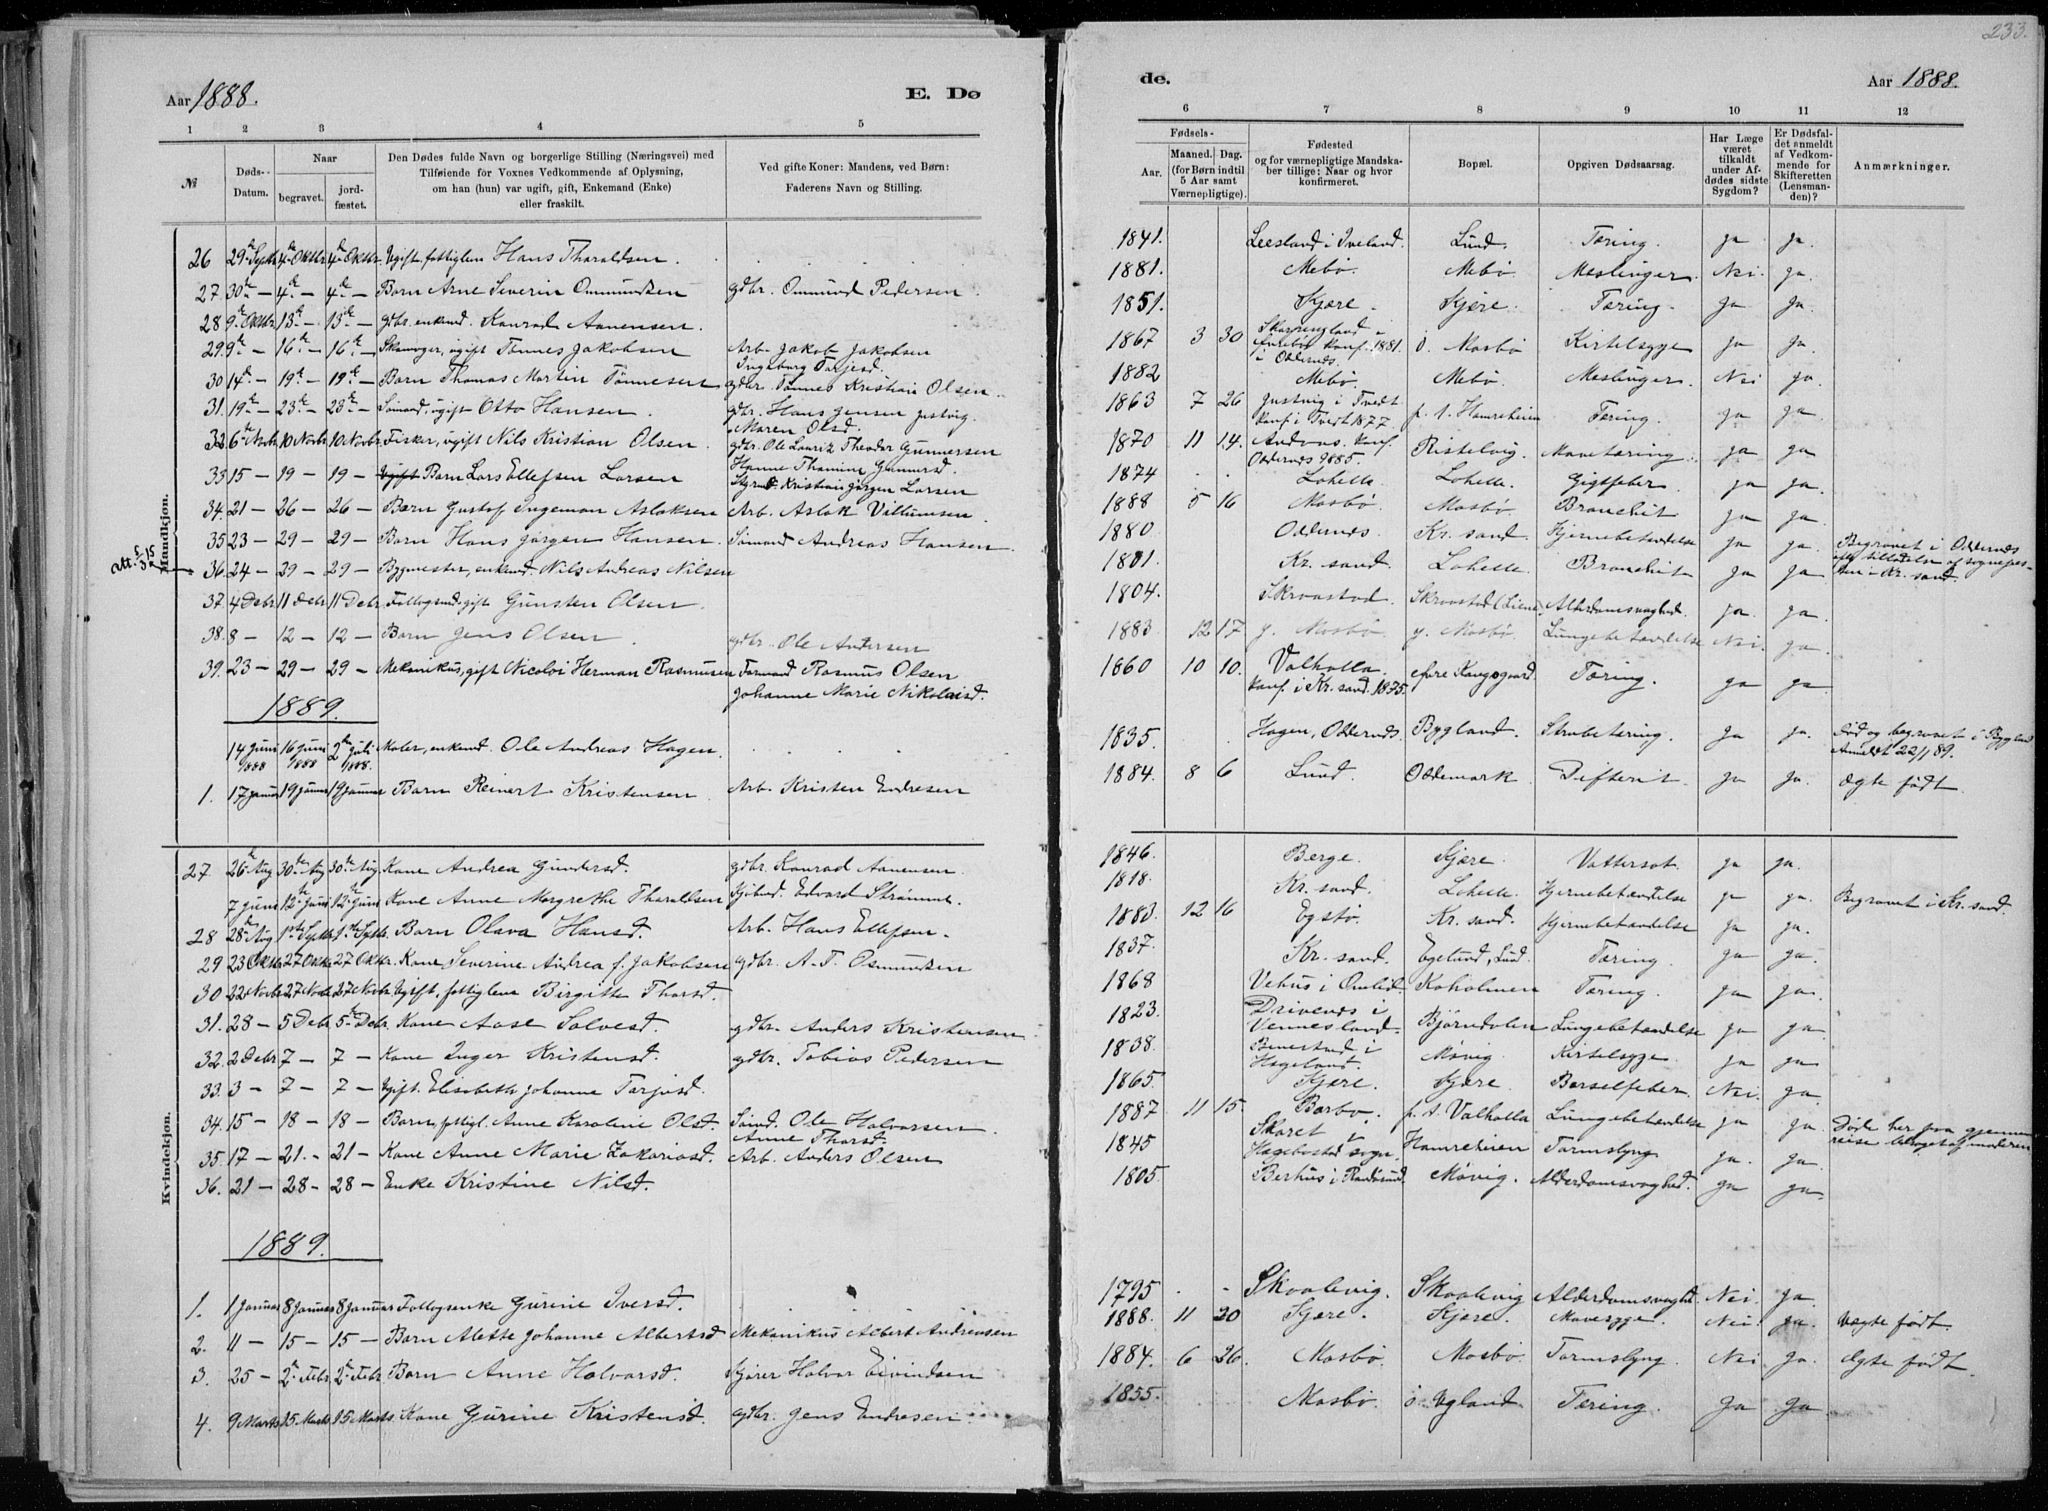 233.
Aar 1888.
E. Dø
de.
Aar 1888.
1 2 3 4 5
6 7 8 9 10 11 12
№
Døds-Datum.
Naar
begravet.
jord-fæstet.
Den Dødes fulde Navn og borgerlige Stilling (Næringsvei) med
Tilføiende for Voxnes Vedkommende af Oplysning,
om han (hun) var ugift, gift, Enkemand (Enke)
eller fraskilt.
Ved gifte Koner: Mandens, ved Børn:
Faderens Navn og Stilling.
Fødsels-
Aar.
Maaned. Dag.
(for Børn indtil
5 Aar samt
Værnepligtige).
Fødested
og for værnepligtige Mandska-
ber tillige: Naar og hvor
konfirmeret.
Bopæl.
Opgiven Dødsaarsag.
Har Læge
været
tilkaldt
under Af-
dødes sidste
Sygdom?
Er Dødsfal-
det anmeldt
af Vedkom-
mende for
Skifteretten
(Lensman-
den)?
Anmærkninger.
Mandkjøn.
26 29de Septbr 4de Oktbr. 4de Oktbr. Ugift, fattiglem Hans Tharaldsen. 1841. Leesland i Iveland. Lund. Tæring. ja ja.
27. 30te — 4de — 4de — Barn Arne Severin Ommundsen gdbr. Ommund Pedersen. 1881. Mebø. Mebø. Meslinger. Nei. ja.
28 9de Oktbr 13de — 13de — gdbr. enkemd. Konrad Aanensen. 1851. Kjære. Kjære. Tæring. ja ja.
29. 9de — 16de — 16de — Skomager, ugift Tønnes Jakobsen Arb. Jakob Jakobsen
Ingeborg Tarjesd. 1867 3 30 konf. 1881.
i Oddernes. ø. Mosbø Kirtelsyge ja ja.
30 14de — 19de — 19de — Barn Thomas Martin Tønnesen gdbr. Tønnes Kristian Olsen. 1882 Mebø. Mebø. Meslinger. Nei ja.
31. 19de — 23de — 23de — Sømand, ugift Otto Hansen. gdbr. Hans Jensen Justvig.
Maren Olsd. 1863 7 26 Justvig i Tveit
konf. i Tveit 1877. p. t. Hamreheien Tæring. ja ja.
32. 6te Novbr. 10 Novbr. 10 Novbr. Fisker, ugift Nils Kristian Olsen. gdbr. Ole Lauritz Theodor Gunnersen
Hanne Thomine Gunnersd. 1870 11 14. Andøas. Konf.
Oddernes 1885. Ristelvig. Mavetæring. ja ja.
33 15 — 19 — 19 — Ugift Barn Lars Ellefsen Larsen Styrmd. Kristian Jørgen Larsen 1874 Lohelle. Lohelle. Gigtfeber. ja ja.
34. 21 — 26 — 26 — Barn Gustof Ingeman Aslaksen Arb. Aslak Villumsen. 1888 5 16 Mosbø. Mosbø. Bronchit ja ja.
35 23 — 29 — 29 — Barn Hans Jørgen Hansen. Sømand Andreas Hansen. 1880 Oddernes Kr. sand. Hjernebetændelse ja ja. Begravet i Oddernes
Att. 5/3 15
36. 24 — 29 — 29 — Bygmester, enkemd. Nils Andreas Nilsen 1801. Kr. sand. Lohelle. Bronchit ja ja efter tilladelse af sognepres-
ten i Kr. sand.
37. 4 Debr 11 Debr 11 Debr. Follogsmd, gift Gunsten Olsen. 1804. Skraastad. Skraastad (Liene) Alderdomsvaghed. ja. ja.
38. 8 — 12 — 12 — Barn Jens Olsen. gdbr. Ole Andersen 1883 12 17 y. Mosbø. y. Mosbø. Lungebetændelse Nei. ja.
39. 23 — 29 — 29 — Mekanikus, gift Nicolai Herman Rasmusen Formand Rasmus Olsen
Johanne Marie Nikolaisd. 1860 10 10. Valhalla.
konf. i Kr. sand. 1875. øvre Kongsgaard Tæring. ja ja
1889.
14 Juni 1888 16 Juni 1888 2den Juli 1888. Maler, enkemd. Ole Andreas Hagen. 1835. Hagen, Oddernes Bygland. Strubetæring. ja ja. Død og begravet i Bygland
Anmeldt 22/1 89.
1. 17 Januar 19 Januar 19 Januar Barn Reinert Kristensen. Arb. Kristen Endresen 1884. 8 6 Lund. Oddemark. Difterit ja ja. Ægte født.
Kvindekjøn.
27 26de Aug 30te Aug 30te Aug Kone Andrea Gundersd. gdbr. Konrad Aanensen. 1846. Berge. Kjære. Vattersot. ja ja.
7 Juni 12te Juni 12te Juni Kone Anne Margrethe Tharaldsen Edvard Strømme. 1818. Kr. sand. Lohelle. Hjernebetændelse ja ja. Begravet i Kr. sand.
28 28de Aug 1ste Septbr 1ste Septbr. Barn Olava Hansd. Arb. Hans Ellefsen. 1883. 12 16 Egstø. Kr. sand. Hjernebetændelse ja ja.
29 23 Oktb 27 Oktb 27 Oktbr. Kone Severine Andrea f. Jakobsen gdbr. A. T. Osmundsen 1837. Kr. sand. Egelund, Lund. Tæring. ja ja.
30 22 Novbr 27 Novbr 27 Novbr Ugift, fattiglem Birgitte Thorsd. 1868 Vehus i Omlid. Koholmen Tæring. ja ja.
31. 28 — 5 Debr. 5te Debr. Kone Aase Salvesd. gdbr. Anders Kristensen 1823. Drivenes i
Vennesland. Bjørndalen Lungebetændelse ja ja.
32. 2 Debr 7 — 7 — Kone Inger Kristensd. gdbr. Tobias Pedersen 1838. i
Hægeland. Møvig. Kirtelsyge. ja ja
33. 3 — 7 — 7 — Ugift. Elisabeth Johanne Tarjesd. 1865. Kjære. Kjære. Barselfeber. Nei. ja.
34. 15 — 18 — 18 — Barn, fattigl. Anne Karoline Olsd. Sømd. Ole Halvorsen.
Anne Thorsd. 1887 11 15. Barbo. p. t. Valhalla Lungebetændelse ja ja. Døde her paa gjennem-
reise ledsaget af moderen
35. 17 — 21. — 21 — Kone Anne Marie Zakariasd. Arb. Anders Olsen 1845 Skaret i
Hægebostad sogn. Hamreheien Tarmslyng ja. ja.
36. 21 — 28 — 28 — Enke Kristine Nilsd. 1805. Berhus i Randesund. Møvig. Alderdomsvaghed. ja ja.
1889.
1. 1 Januar 8 Januar 8 Januar Follogsenke Gurine Iversd. 1795 Skaalevig. Skaalevig Alderdomsvaghed. Nei. ja.
2. 11 — 15 — 15 — Barn Alette Johanne Albertsd Mekanikus Albert Andreasen 1888. 11 20 Kjære. Kjære. Mavesyge. Nei. ja. Uægte født.
3. 25 — 2den Febr. 2den Febr Barn Anne Halvorsd. Kjører Halvor Eivindsen 1884. 6 26. Mosbø. Mosbø. Tarmslyng. Nei ja. Ægte født.
4. 9 Marts 15 Marts 15 Marts. Kone Gurine Kristensd. gdbr. Jens Endresen. 1855. Mosbø. ø. Augland. Tæring. ja ja.